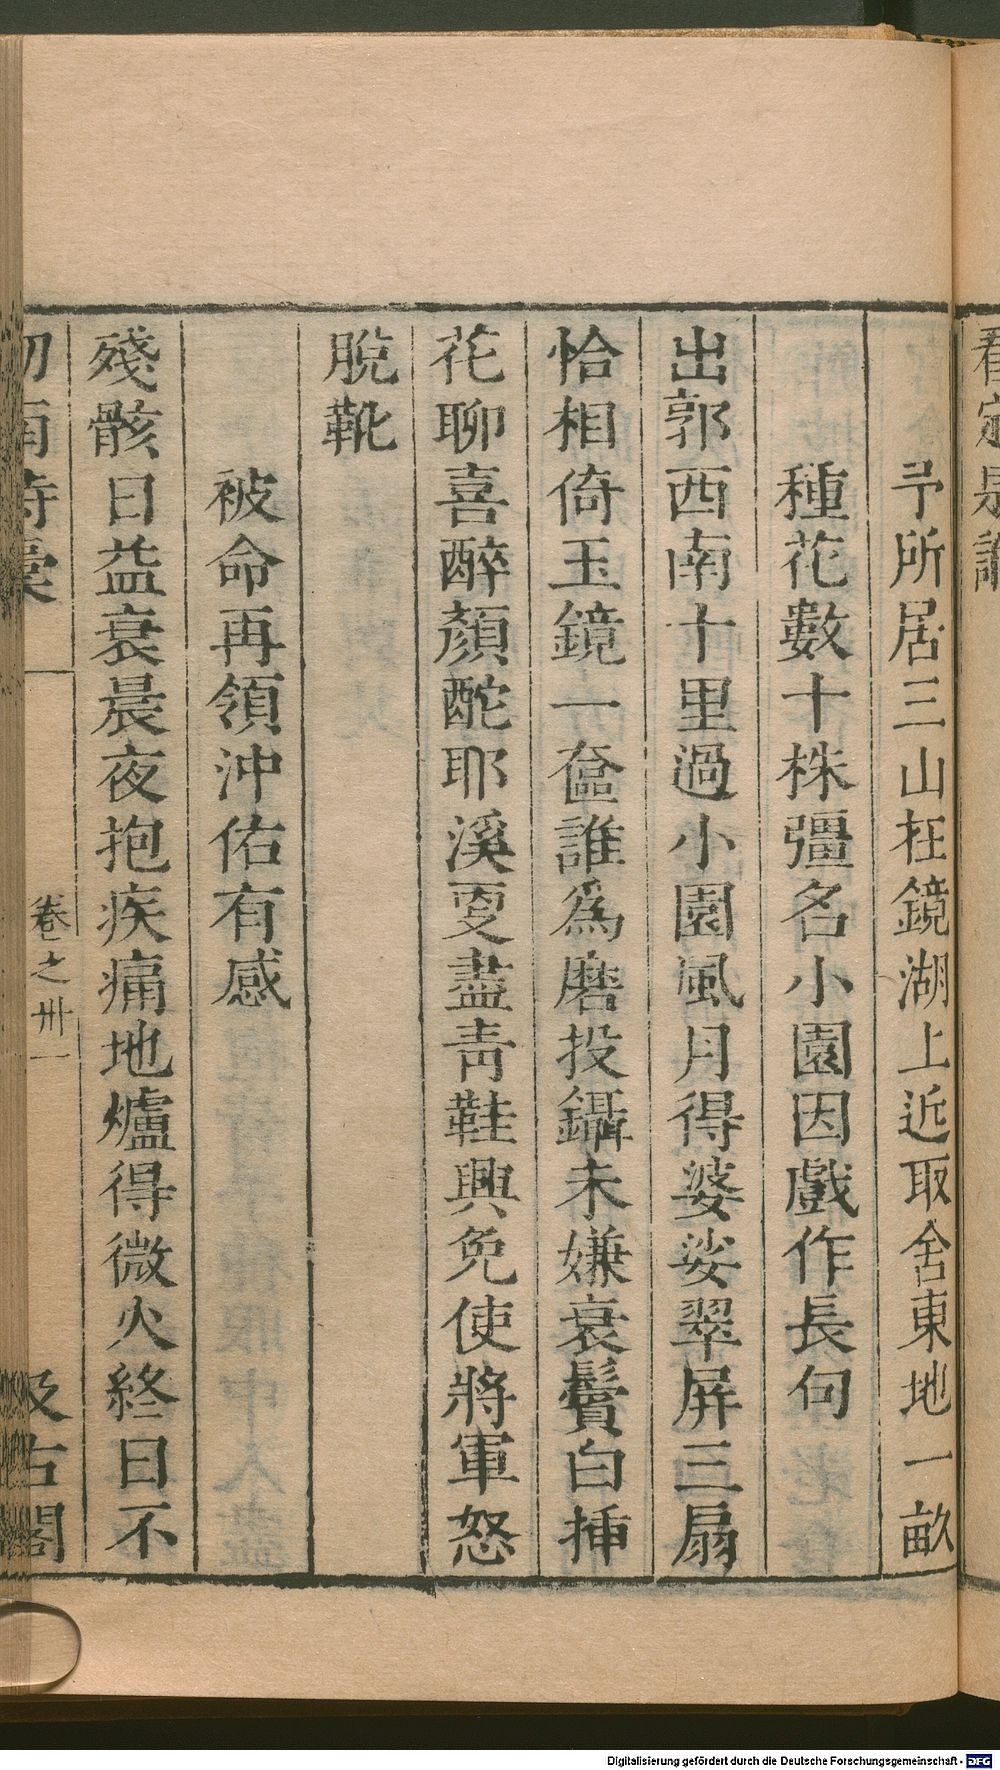 予所居三山在鏡湖上近取舍東地一畝
種花數十株彊名小園因戲作長句
出郭西南十里過小園風月得婆娑翠屏三扇
恰相倚玉鏡一奩誰爲磨投鑷未嫌衰鬢白揷
花聊喜醉顏酡耶溪更盡靑鞋興免使將軍怒
脫靴
被命再領沖佑有感
殘骸日益衰晨夜抱疾痛地爐得微火終日不
南詩
卷之卅一
古閣
Digitalisierung gefördert durch die Deutsche Forschungsgemeinschaft - DFG